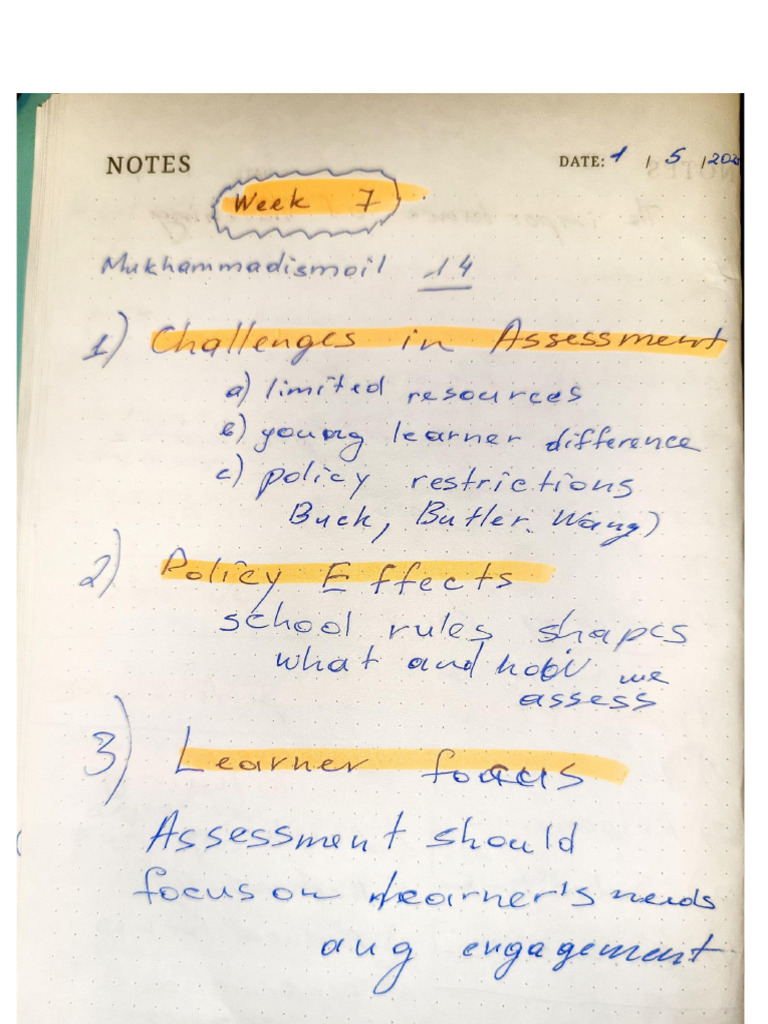 NOTES
DATE: 1 / 5 / 202
Week 7
Mukhammadismoil 14
1) Challenges in Assessment
a) limited resources
b) young learner difference
c) policy restrictions
Buck, Butler. Wang)
2) Policy Effects
school rules shapes
what and how we
assess
3) Learner focus
Assessment should
focus on learner's needs
aug engagement